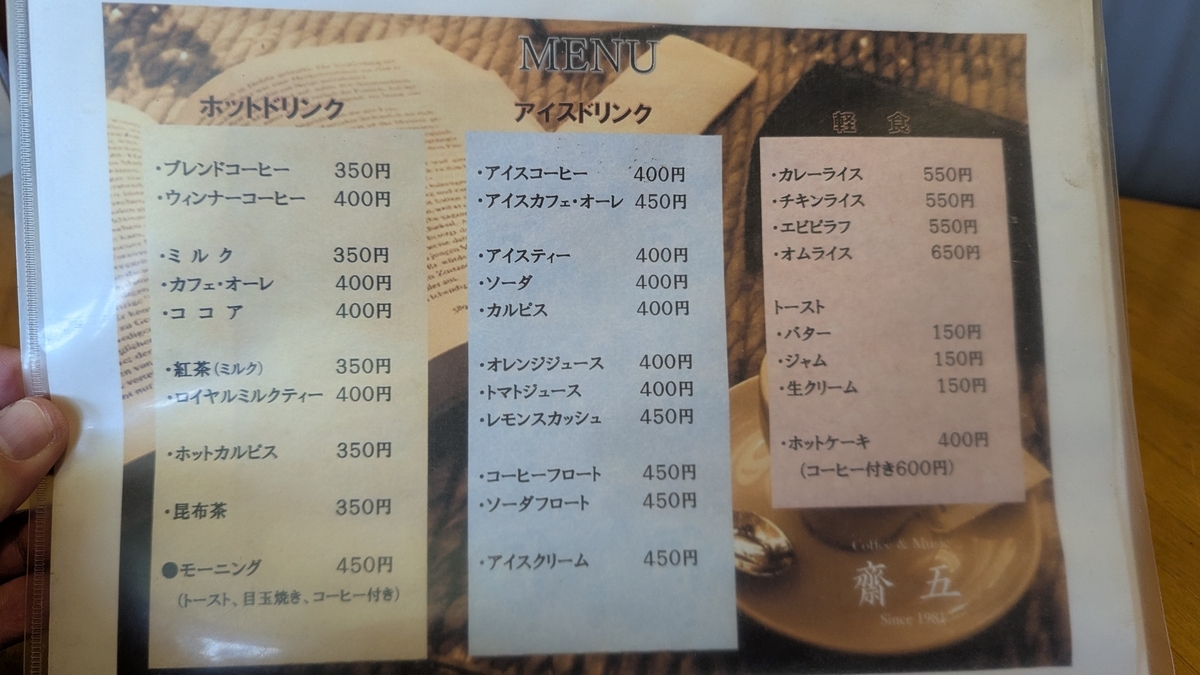 MENU
ホットドリンク
・ブレンドコーヒー 350円
・ウィンナーコーヒー 400円
・ミルク 350円
・カフェ・オーレ 400円
・ココア 400円
・紅茶(ミルク) 350円
・ロイヤルミルクティー 400円
・ホットカルピス 350円
・昆布茶 350円
●モーニング 450円
(トースト、目玉焼き、コーヒー付き)
アイスドリンク
・アイスコーヒー 400円
・アイスカフェ・オーレ 450円
・アイスティー 400円
・ソーダ 400円
・カルピス 400円
・オレンジジュース 400円
・トマトジュース 400円
・レモンスカッシュ 450円
・コーヒーフロート 450円
・ソーダフロート 450円
・アイスクリーム 450円
軽食
・カレーライス 550円
・チキンライス 550円
・エビピラフ 550円
・オムライス 650円
トースト
・バター 150円
・ジャム 150円
・生クリーム 150円
・ホットケーキ 400円
(コーヒー付き600円)
Coffee & Music
齋五
Since 1981